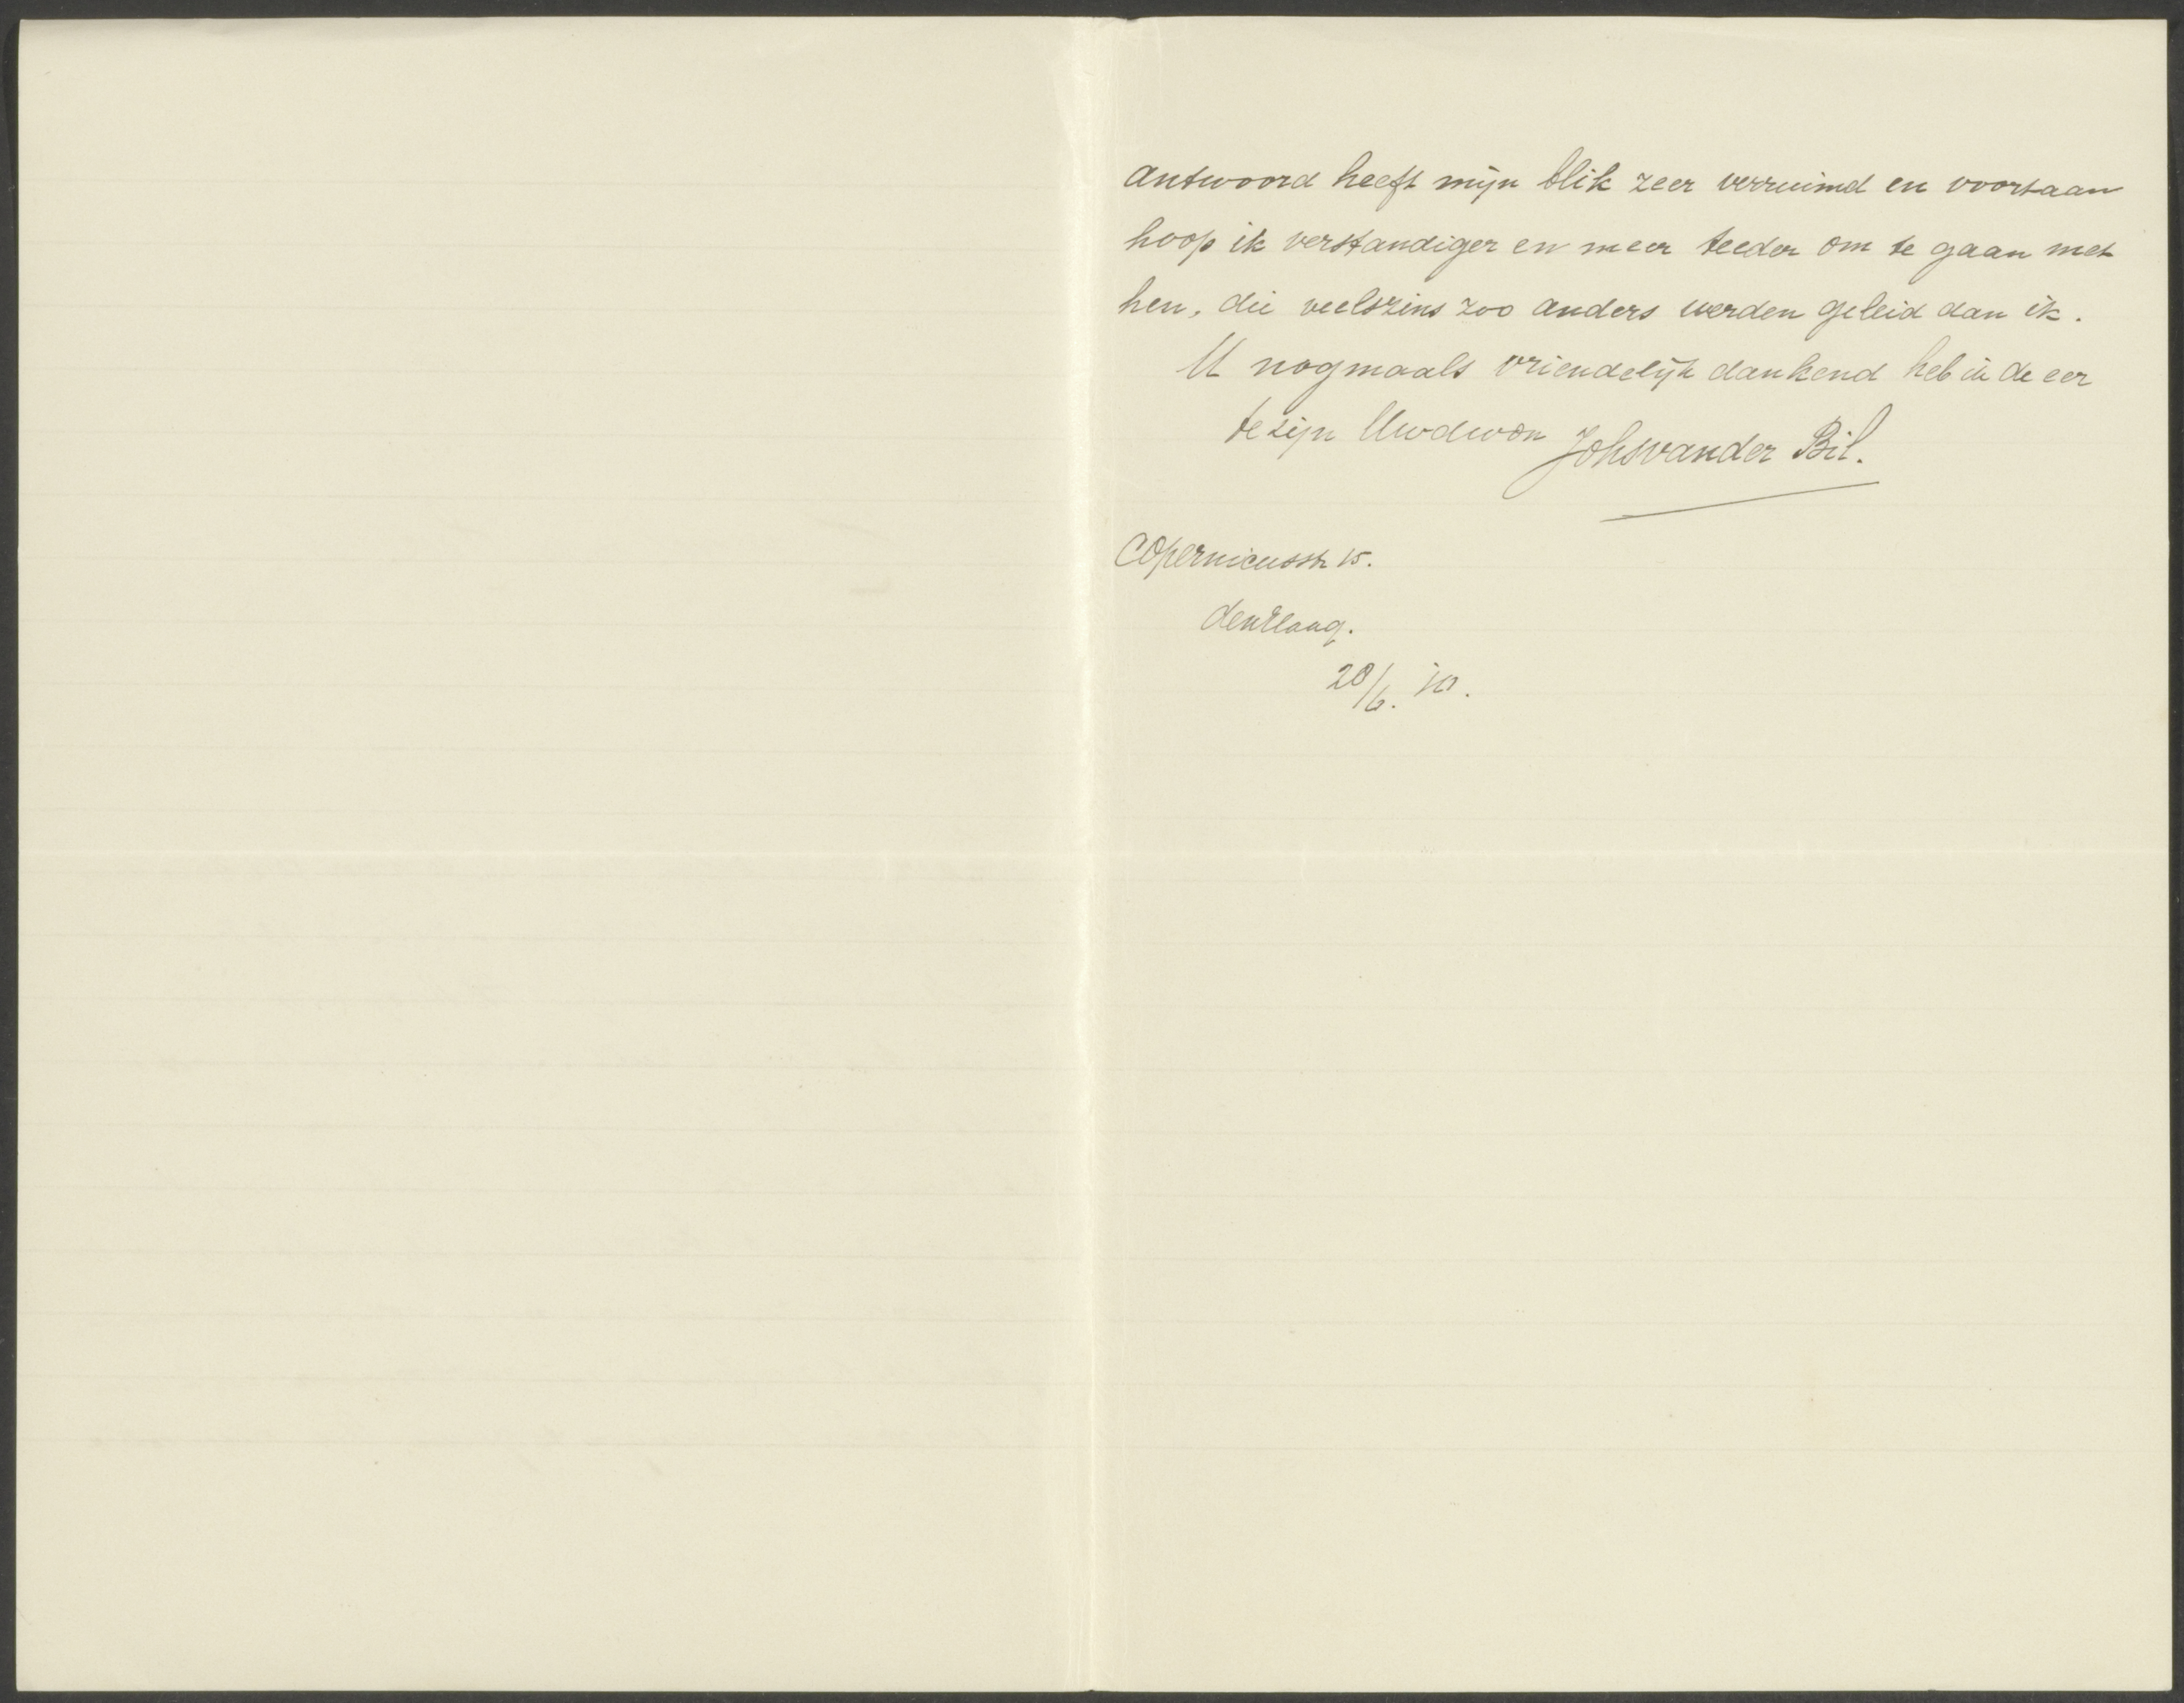 antwoord heeft mijn blik zeer verruimd en voortaan
hoop ik verstandiger en meer teeder om te gaan met
hen, die veelszins zoo anders werden geleid dan ik.
U nogmaals vriendelijk dankend heb ik de eer
te zijn Uwdwdn Johsvander Bil.
Copernicusstr 15.
den Haag.
20/6. '10.